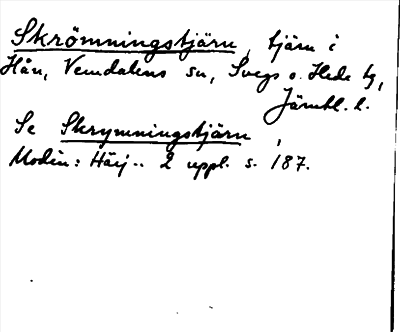 Skrömningstjärn, tjärn i
Hån, Vemdalens sn, Svegs o. Hede tg,
Jämtl. l.
Se Skrymningstjärn,
Modin: Härj.. 2 uppl. s. 187.